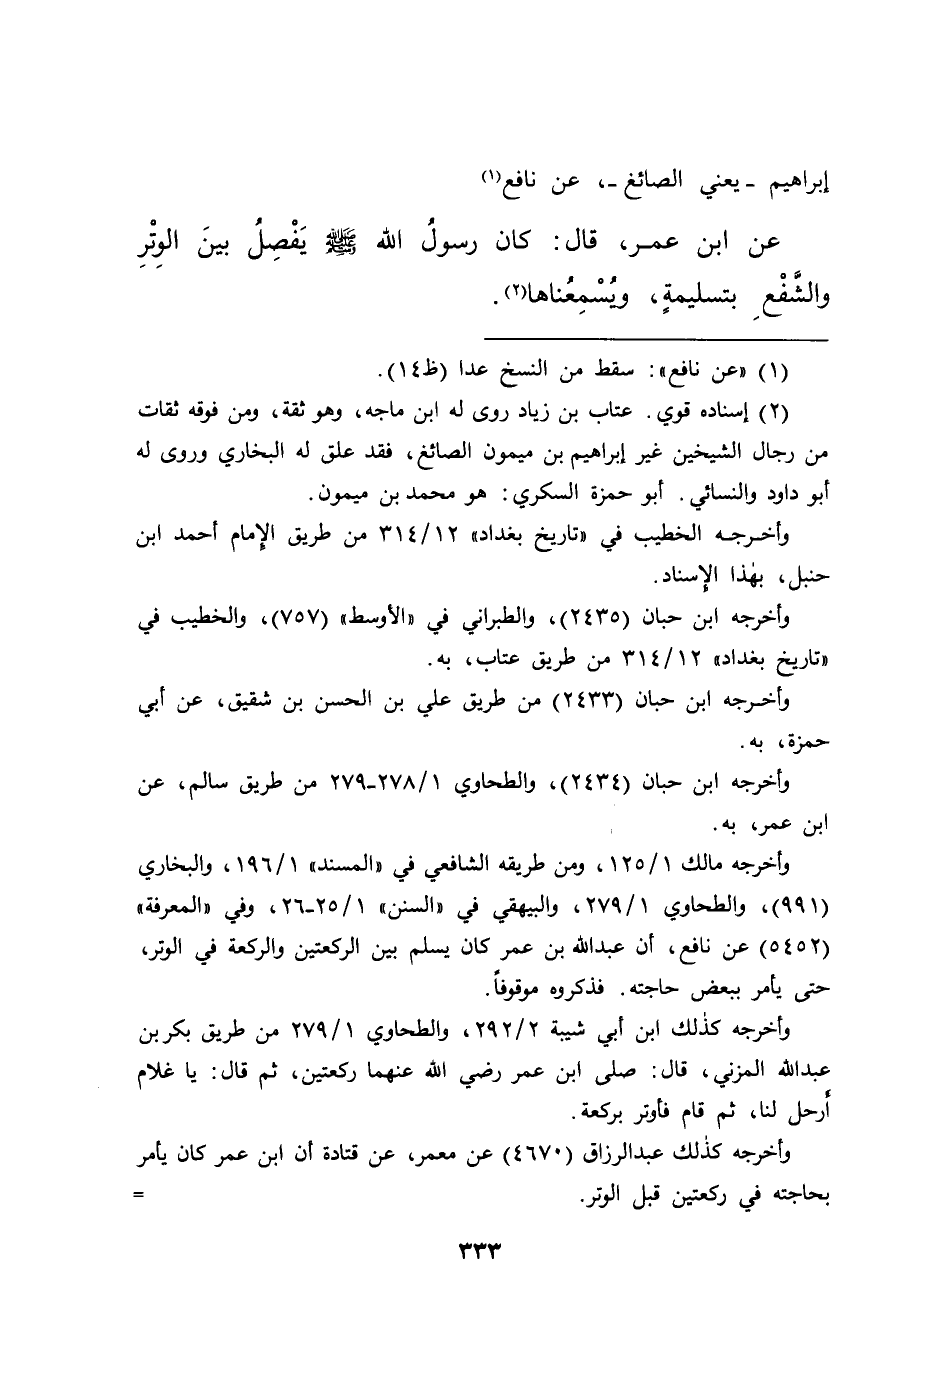 إبراهيم ـ يعني الصائغ ـ، عن نافع(١)
عن ابن عمـر، قال: كان رسولُ الله ﷺ يَفْصِلُ بينَ الوِتْرِ
والشَّفْعِ بتسليمةٍ، ويُسْمِعُناها(٢).
(١) «عن نافع»: سقط من النسخ عدا (ظ١٤).
(٢) إسناده قوي. عتاب بن زياد روى له ابن ماجه، وهو ثقة، ومن فوقه ثقات
من رجال الشيخين غير إبراهيم بن ميمون الصائغ، فقد علق له البخاري وروى له
أبو داود والنسائي. أبو حمزة السكري: هو محمد بن ميمون.
وأخـرجـه الخطيب في «تاريخ بغداد» ٣١٤/١٢ من طريق الإمام أحمد ابن
حنبل، بهٰذا الإسناد.
وأخرجه ابن حبان (٢٤٣٥)، والطبراني في «الأوسط» (٧٥٧)، والخطيب في
«تاريخ بغداد» ٣١٤/١٢ من طريق عتاب، به.
وأخـرجه ابن حبان (٢٤٣٣) من طريق علي بن الحسن بن شقيق، عن أبي
حمزة، به.
وأخرجه ابن حبان (٢٤٣٤)، والطحاوي ٢٧٨/١ـ٢٧٩ من طريق سالم، عن
ابن عمر، به.
وأخرجه مالك ١٢٥/١، ومن طريقه الشافعي في «المسند» ١٩٦/١، والبخاري
(٩٩١)، والطحاوي ٢٧٩/١، والبيهقي في «السنن» ٢٥/١ـ٢٦، وفي «المعرفة»
(٥٤٥٢) عن نافع، أن عبدالله بن عمر كان يسلم بين الركعتين والركعة في الوتر،
حتى يأمر ببعض حاجته. فذكروه موقوفاً.
وأخرجه كذٰلك ابن أبي شيبة ٢٩٢/٢، والطحاوي ٢٧٩/١ من طريق بكر بن
عبدالله المزني، قال: صلى ابن عمر رضي الله عنهما ركعتين، ثم قال: يا غلام
أَرحل لنا، ثم قام فأوتر بركعة.
وأخرجه كذٰلك عبدالرزاق (٤٦٧٠) عن معمر، عن قتادة أن ابن عمر كان يأمر
بحاجته في ركعتين قبل الوتر. =
٣٣٣